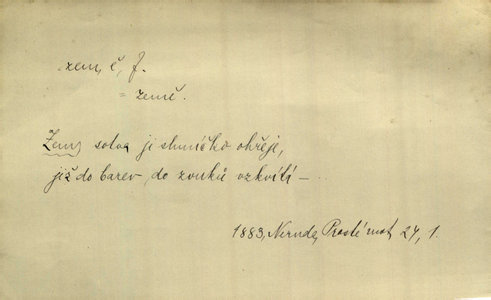 zem, ě, f.
= země.
Zem, sotva ji sluníčko ohřeje,
již do barev, do zvuků vzkvílí –
1883, Neruda, Prosté mot. 24, 1.